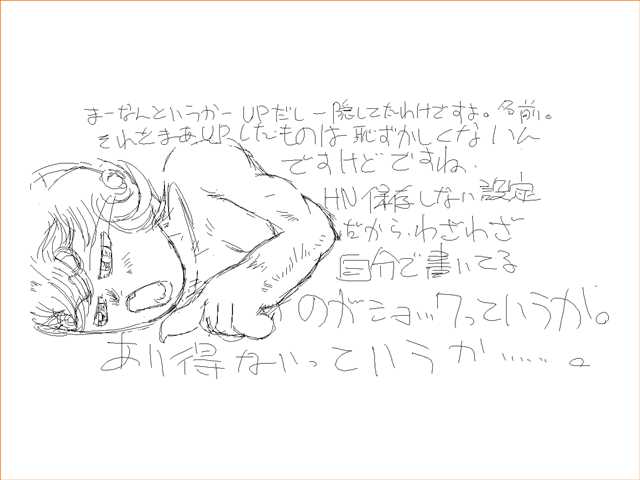 まーなんというかー UPだしー隠してたわけですよ。名前。
それをまあUPしたものは恥ずかしくないん
ですけどですね.
HN保存しない設定
だから.わざわざ
自分で書いてる
のがショックっていうか。
あり得ないっていうか……。